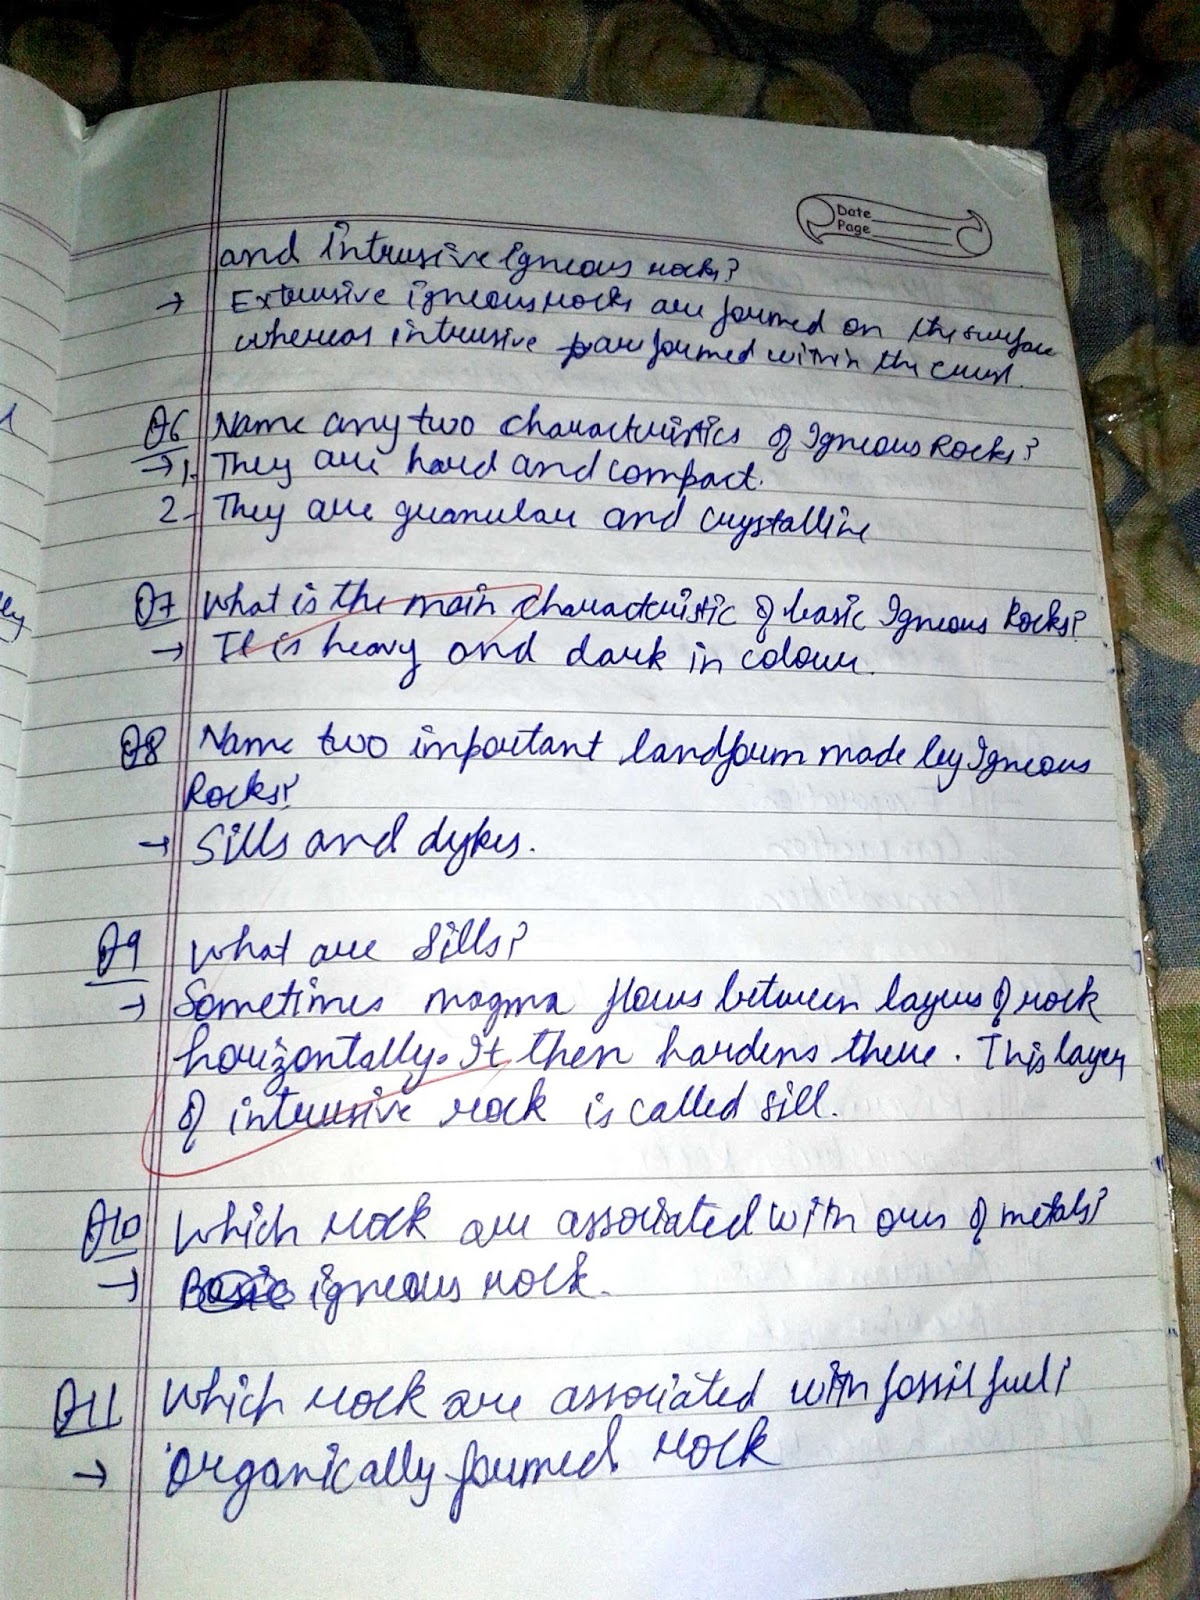 Date
Page
and Intrusive igneous rocks?
→ Extrusive igneous rocks are formed on the surface
whereas intrusive are formed within the crust.
Q6 Name any two characteristics of Igneous Rocks?
→ 1. They are hard and compact.
2. They are granular and crystalline
Q7 What is the main characteristic of basic Igneous Rocks?
→ It is heavy and dark in colour.
Q8 Name two important landform made by Igneous
Rocks?
→ Sills and dykes.
Q9 What are Sills?
→ Sometimes magma flows between layers of rock
horizontally. It then hardens there. This layer
of intrusive rock is called sill.
Q10 Which rock are associated with ores of metals?
→ Basic igneous rock.
Q11 Which rock are associated with fossil fuel?
→ Organically formed rock